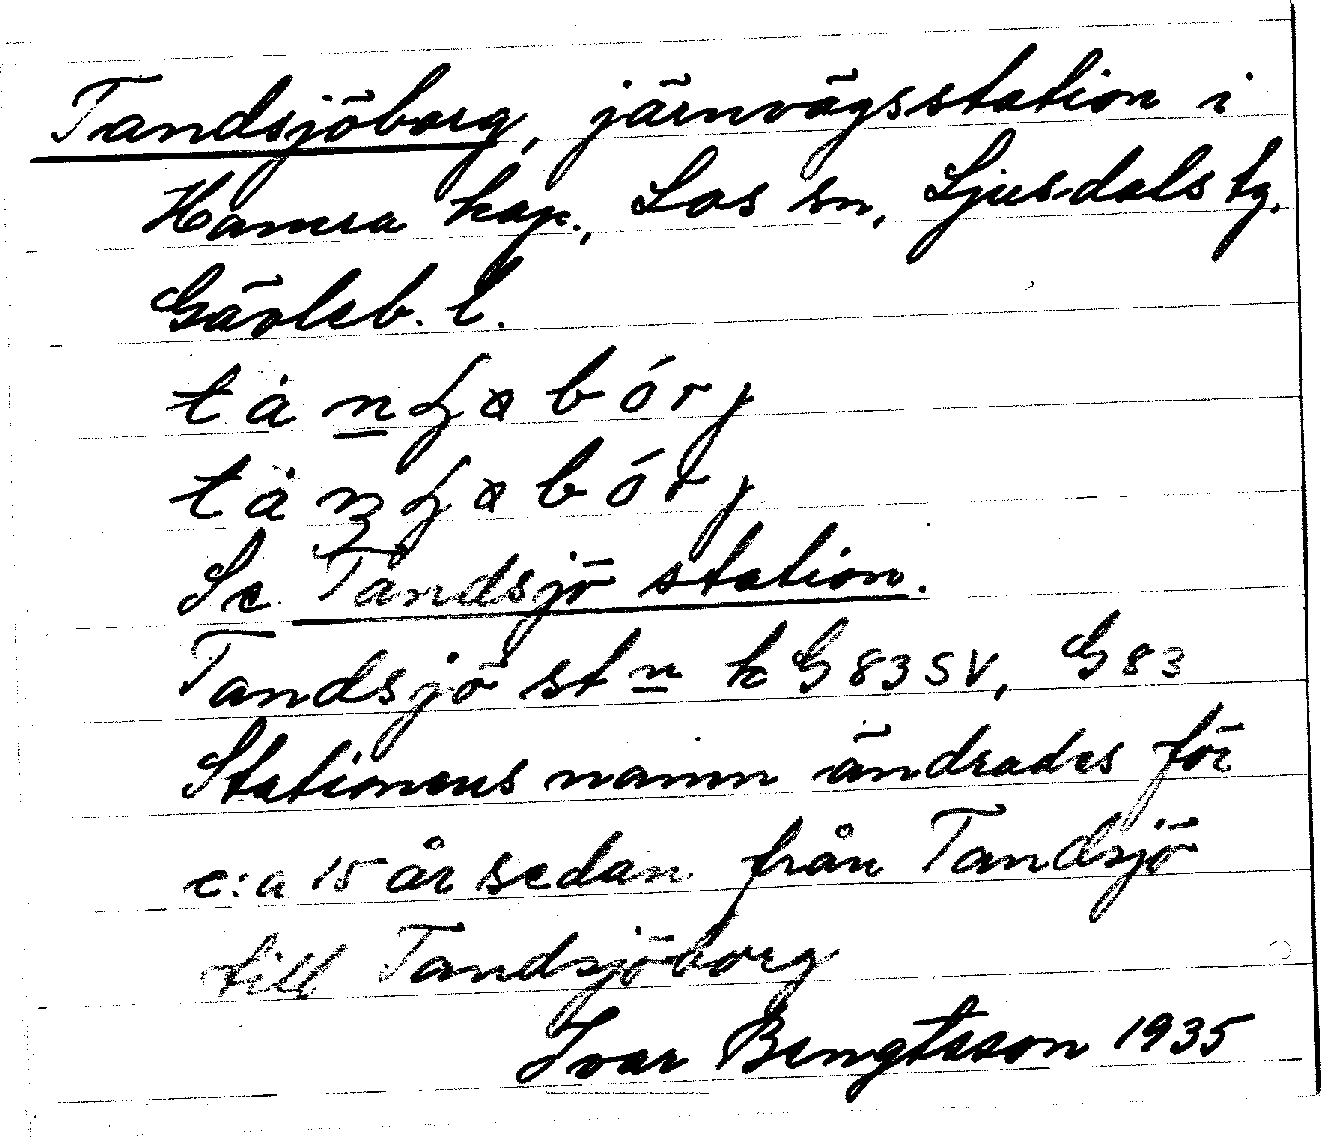 Tandsjöborg, järnvägsstation i
Hamra kap., Los sn, Ljusdals tg.
Gävleb. l.
Se Tandsjö station.
Tandsjö stn k G 83 SV, G 83
Stationens namn ändrades för
c:a 15 år sedan från Tandsjö
till Tandsjöborg
Ivar Bengtsson 1935